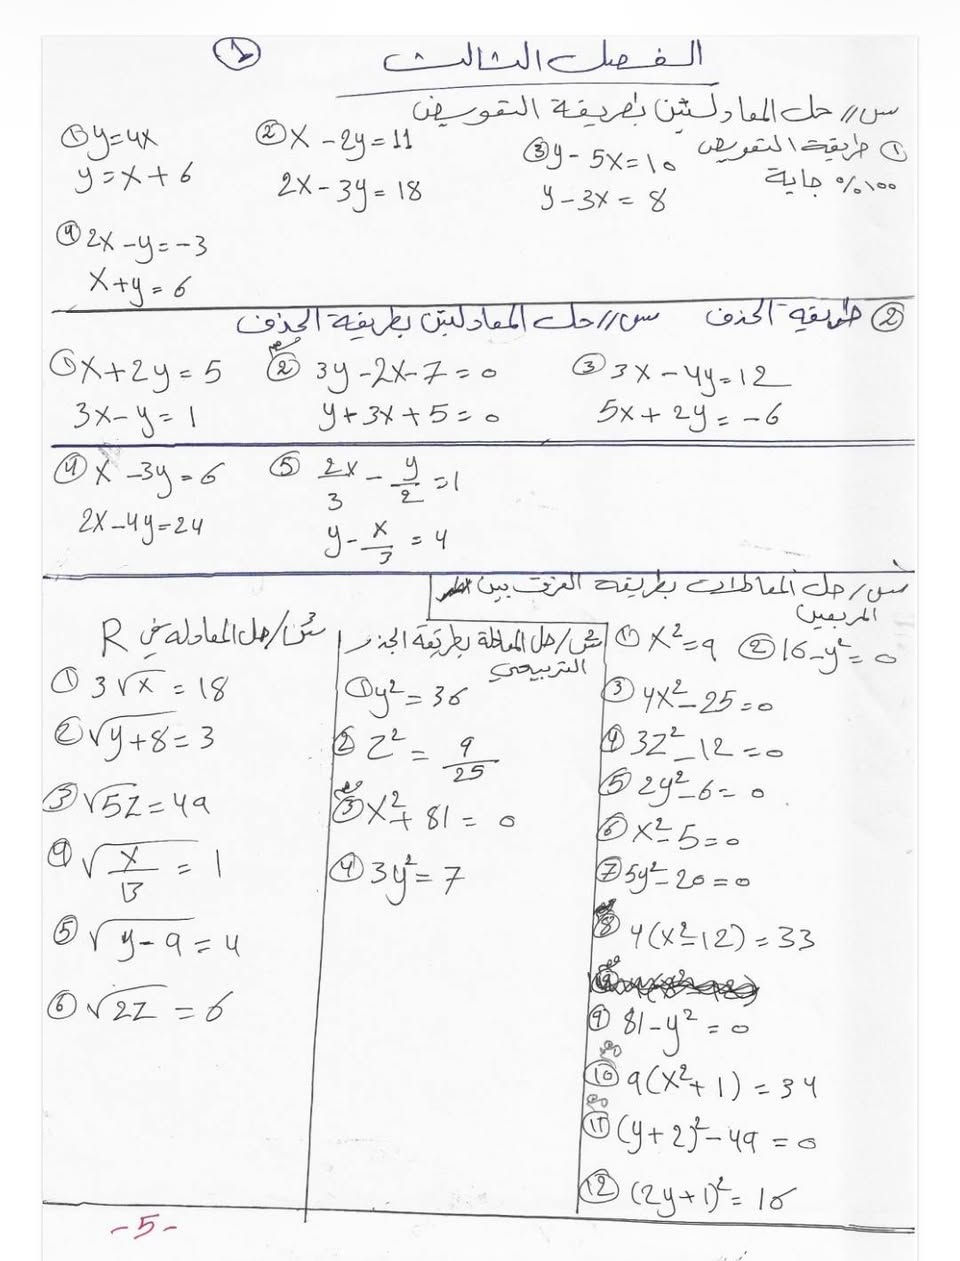 الفصل الثالث
①
س// حل المعادلتين بطريقة التعويض
① طريقة التعويض
١٠٠% جاية
① y=4x
y=x+6
② x-2y=11
2x-3y=18
③ y-5x=10
y-3x=8
④ 2x-y=-3
x+y=6
② طريقة الحذف س// حل المعادلتين بطريقة الحذف
① x+2y=5
3x-y=1
② 3y-2x-7=0
y+3x+5=0
③ 3x-4y=12
5x+2y=-6
④ x-3y=6
2x-4y=24
⑤ 2x/3 - y/2 =1
y - x/3 = 4
س/ حل المعادلات بطريقة الفرق بين
المربعين
① x²=9
② 16-y²=0
③ 4x²-25=0
④ 3z²-12=0
⑤ 2y²-6=0
⑥ x²-5=0
⑦ 5y²-20=0
⑧ 4(x²-12)=33
⑨ 81-y²=0
⑩ 9(x²+1)=34
⑪ (y+2)²-49=0
⑫ (2y+1)²=16
س/ حل المعادلة بطريقة الجذر
التربيعي
① y²=36
② z² = 9/25
③ x²+81=0
④ 3y²=7
س/ حل المعادلة في R
① 3√x=18
② √y+8=3
③ √5z=49
④ √x/13 = 1
⑤ √y-9=4
⑥ √2z=6
-5-